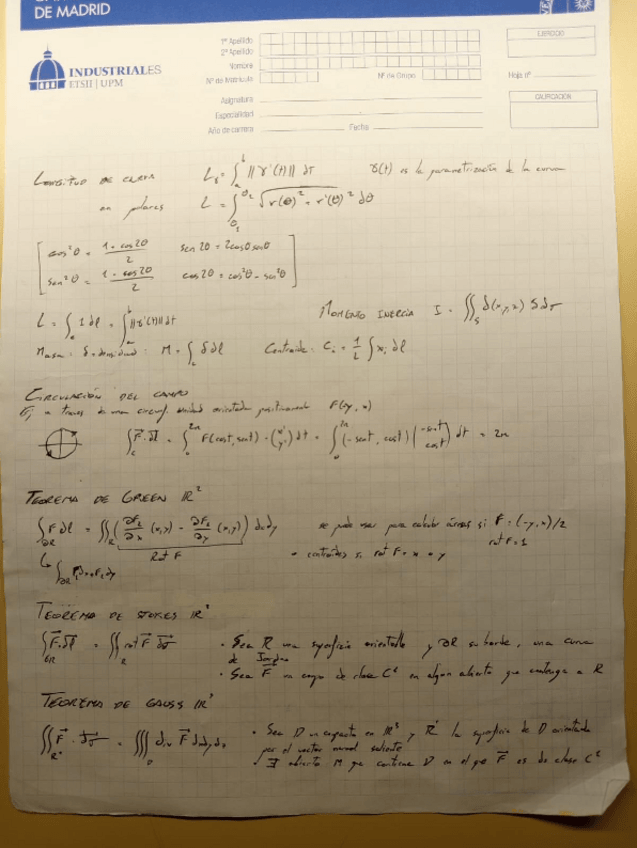 DE MADRID
INDUSTRIALES
ETSII | UPM
1º Apellido
2º Apellido
Nombre
Nº de Matrícula
Nº de Grupo
Asignatura
Especialidad
Año de carrera
Fecha
EJERCICIO
Hoja nº
CALIFICACIÓN
LONGITUD DE CURVA L_γ = ∫_a^b ||γ'(t)|| dt γ(t) es la parametrización de la curva
en polares L = ∫_{θ_1}^{θ_2} √(r(θ)² + r'(θ)²) dθ
cos²θ = (1 + cos 2θ)/2 sen 2θ = 2cosθ senθ
sen²θ = (1 - cos 2θ)/2 cos 2θ = cos²θ - sen²θ
L = ∫_c 1 dl = ∫_a^b ||γ'(t)|| dt MOMENTO INERCIA I = ∬_S
Masa: δ = densidad: M = ∫_c δ dl Centroide: C_i = 1/L ∫ x_i dl
CIRCULACIÓN DEL CAMPO
Ej a traves de una circunf. unidad orientada positivamente F(-y, x)
∫_c F⃗·dl⃗ = ∫_0^{2π} F(cost, sent) · (x' y') dt = ∫_0^{2π} (-sent, cost) (-sent cost) dt = 2π
TEOREMA DE GREEN ℝ²
∫_{∂R} F dl = ∬_R (∂F_2/∂x (x,y) - ∂F_1/∂y (x,y)) dxdy se puede usar para calcular áreas si F = (-y, x)/2
Rot F rot F = 1
• centroides si rot F = x o y
TEOREMA DE STOKES ℝ³
∫_{∂R} F⃗·dl⃗ = ∬_R rot F⃗ dσ⃗ • Sea R una superficie orientable y ∂R su borde, una curva
de Jordan
• Sea F⃗ un campo de clase C¹ en algun abierto que contenga a R
TEOREMA DE GAUSS ℝ³
∬_{R⁺} F⃗ · dσ⃗ = ∭_D div F⃗ dxdydz • Sea D un compacto en ℝ³ y R⁺ la superficie de D orientada
por el vector normal saliente
• ∃ abierto M que contiene D en el que F⃗ es de clase C¹